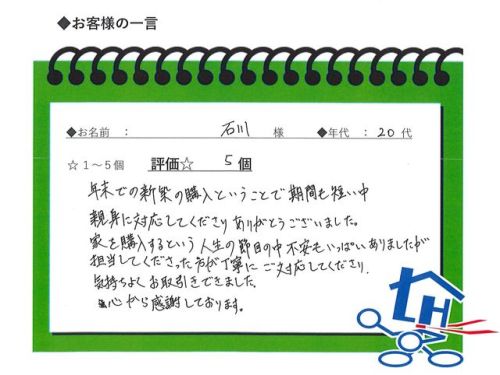 ◆お客様の一言
◆お名前 : 石川 様 ◆年代 : 20 代
☆1～5個 評価☆ 5 個
年末での新築の購入ということで期間も短い中
親身に対応してくださりありがとうございました。
家を購入するという人生の節目の中不安もいっぱいありましたが
担当してくださった方が丁寧にご対応してくださり、
気持ちよくお取引きできました。
心から感謝しております。
LH